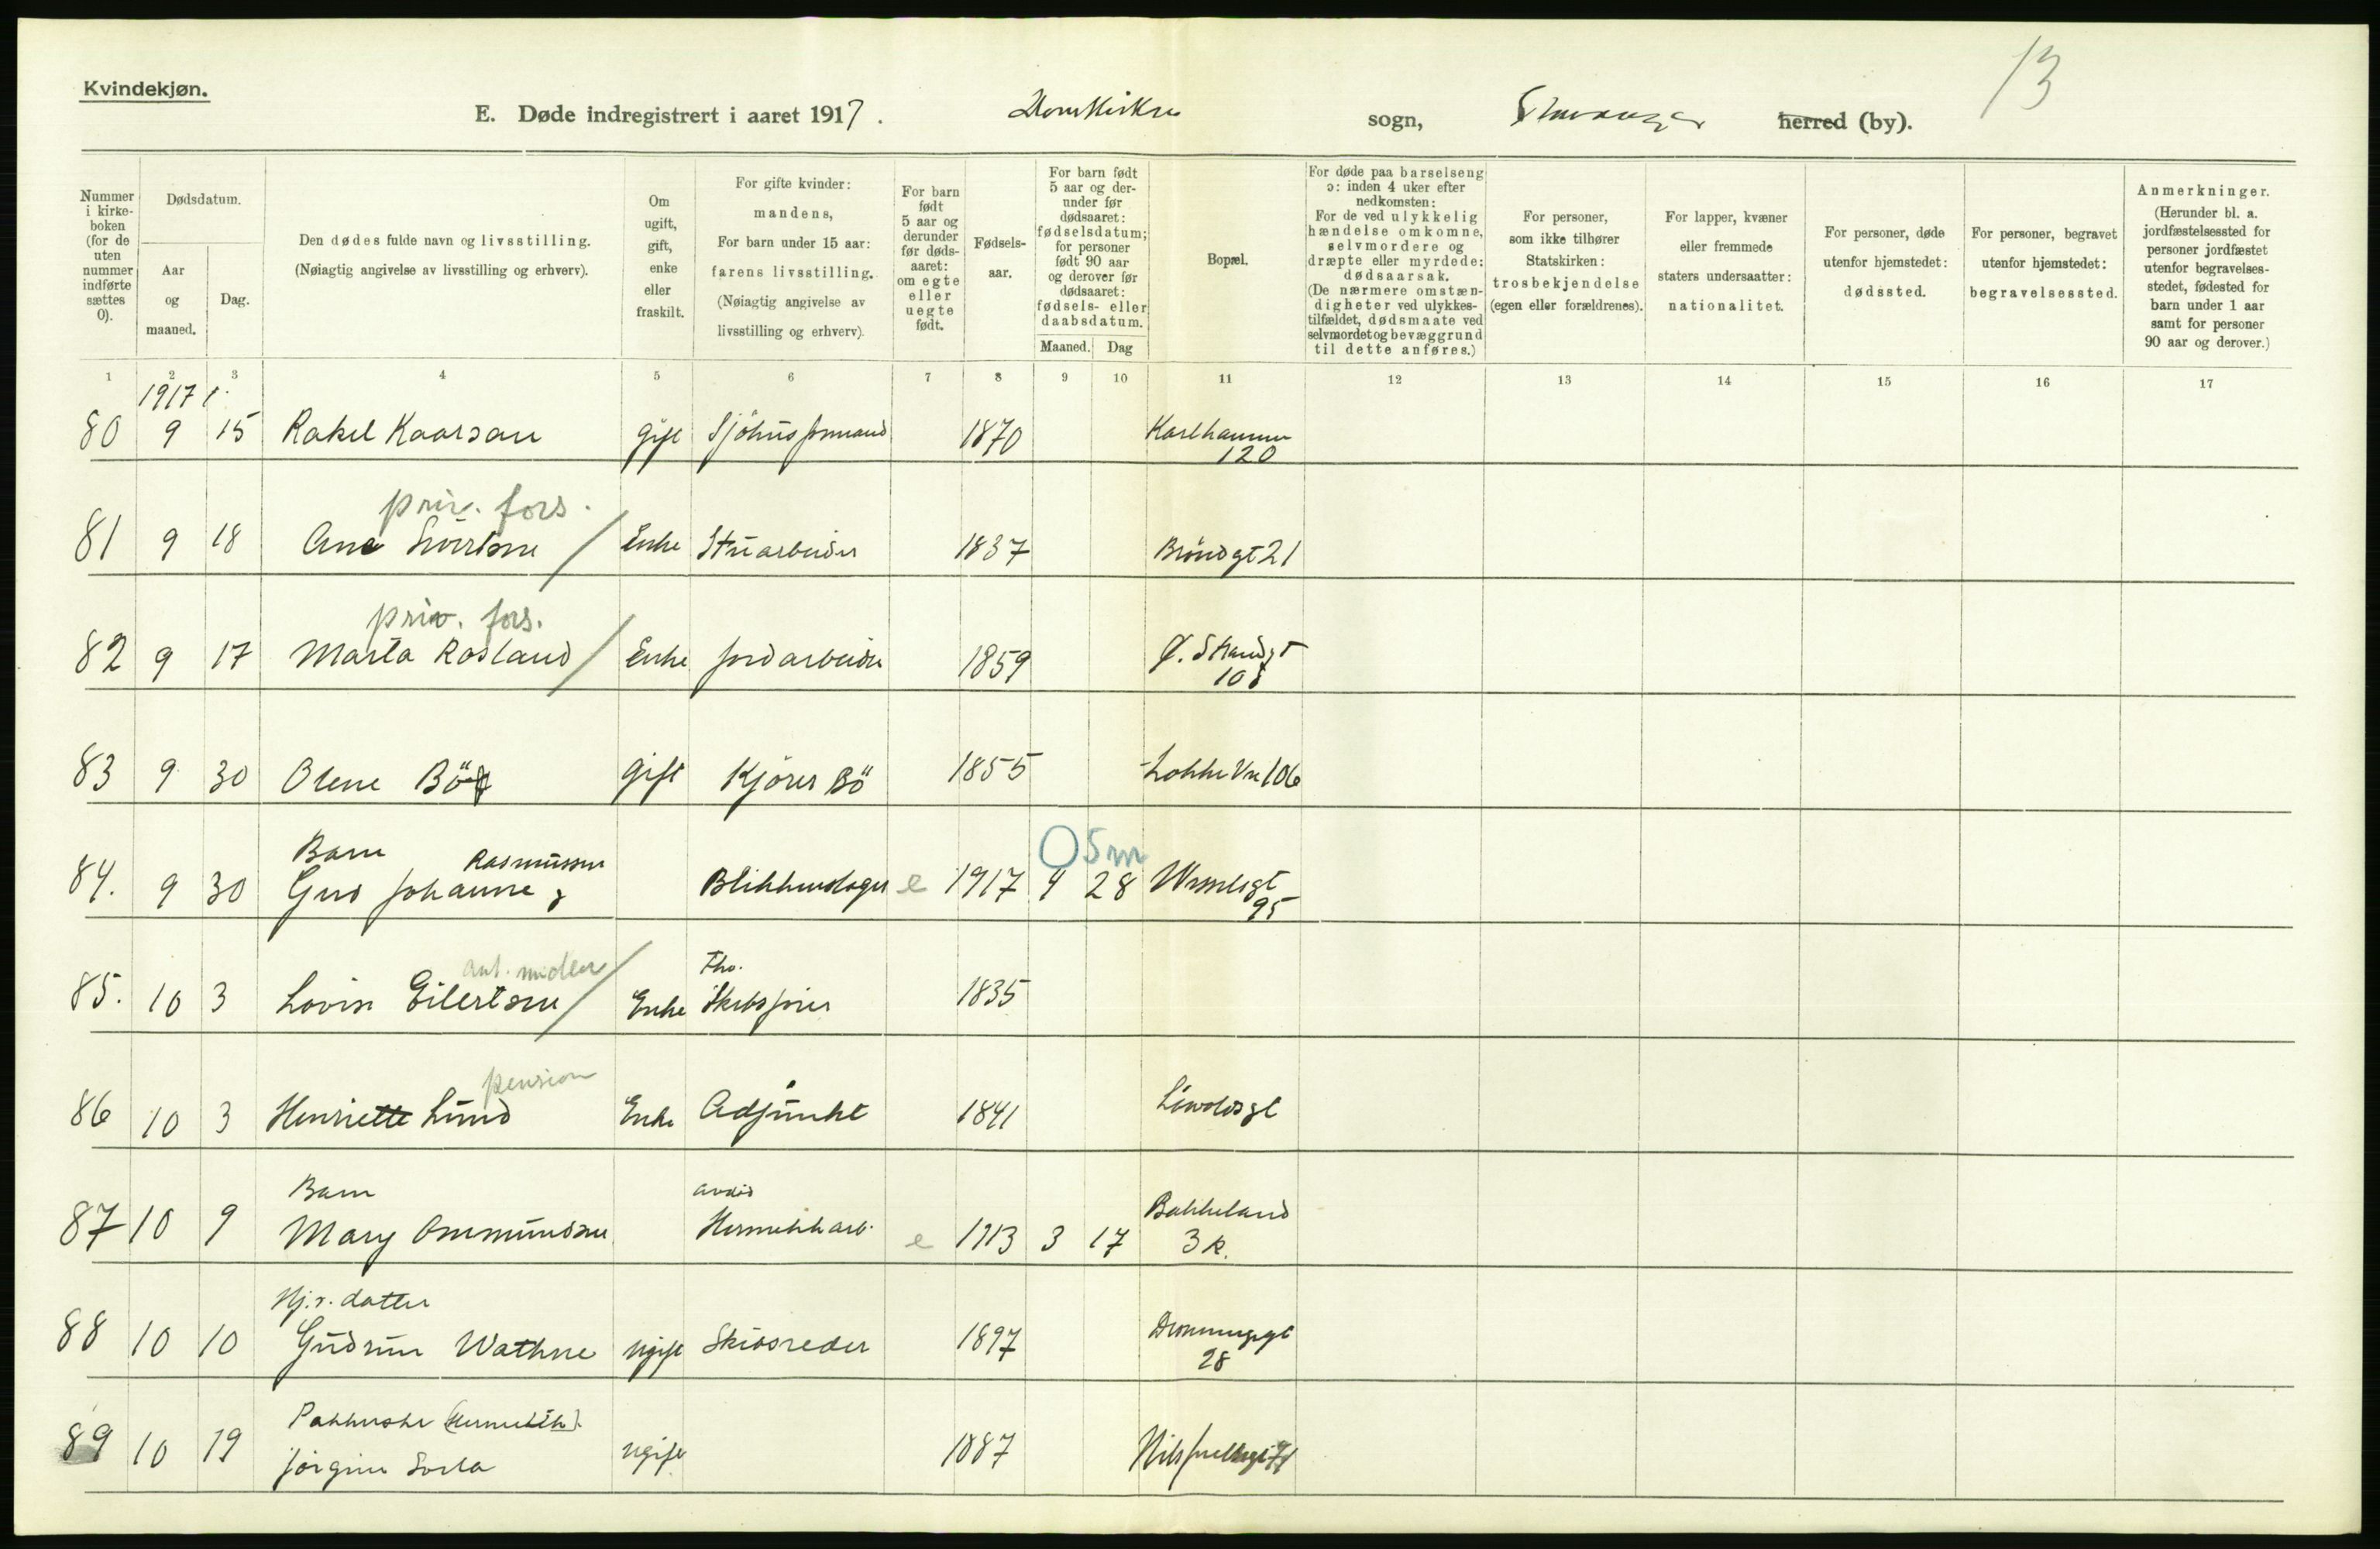 Kvindekjøn.
13
E. Døde indregistrert i aaret 1917. Domkirken sogn, Stavanger herred (by).
Nummer i kirke-boken (for de uten nummer indførte sættes 0).
Dødsdatum.
Aar og maaned.
Dag.
Den dødes fulde navn og livsstilling.
(Nøiagtig angivelse av livsstilling og erhverv).
Om ugift, gift, enke eller fraskilt.
For gifte kvinder: mandens,
For barn under 15 aar: farens livsstilling.
(Nøiagtig angivelse av livsstilling og erhverv).
For barn født 5 aar og derunder før døds-aaret: om egte eller uegte født.
Fødsels-aar.
For barn født 5 aar og der-under før dødsaaret: fødselsdatum; for personer født 90 aar og derover før dødsaaret: fødsels- eller daabsdatum.
Maaned. Dag
Bopæl.
For døde paa barselseng ɔ: inden 4 uker efter nedkomsten:
For de ved ulykkelig hændelse omkomne, selvmordere og dræpte eller myrdede: dødsaarsak.
(De nærmere omstæn-digheter ved ulykkes-tilfældet, dødsmaate ved selvmordet og bevæggrund til dette anføres.)
For personer, som ikke tilhører Statskirken: trosbekjendelse (egen eller forældrenes).
For lapper, kvæner eller fremmede staters undersaatter: nationalitet.
For personer, døde utenfor hjemstedet: dødssted.
For personer, begravet utenfor hjemstedet: begravelsessted.
Anmerkninger.
(Herunder bl. a. jordfæstelsessted for personer jordfæstet utenfor begravelses-stedet, fødested for barn under 1 aar samt for personer 90 aar og derover.)
1 2 3 4 5 6 7 8 9 10 11 12 13 14 15 16 17
1917
80 9 15 Rakel Kaarsen gift Sjøhusformand 1870 Karlhammer 120
priv. fors.
81 9 18 Ane Sivertsen Enke Stuarbeider 1837 Bröndgt 21
priv. fors.
82 9 17 Marta Rosland Enke Jordarbeider 1859 Ø. Strandgt 108
83 9 30 Olene Bö gift Kjörer Bö 1855 Lokke Vn 106
Barn Rasmussen 0 5 m
84. 9 30 Gud Johanne Blikkenslager e 1917 4 28 Wesselsgt 95
ant. midler Fhv.
85. 10 3 Lovise Eilertsen Enke Skibsfører 1835
pension
86 10 3 Henriette Lund Enke Adjunkt 1841 Lövoldsgt
Barn
87 10 9 Mary Ommundsen Hermetikkarb. e 1913 3 17 Bakkeland 3 R.
Hj.v. datter
88 10 10 Gudrun Wathne ugift Skibsreder 1897 Dronningsgt 28
Pakkerske (Hermetik).
89 10 19 Jörgine ugift 1887 Nils Juelsgt 71